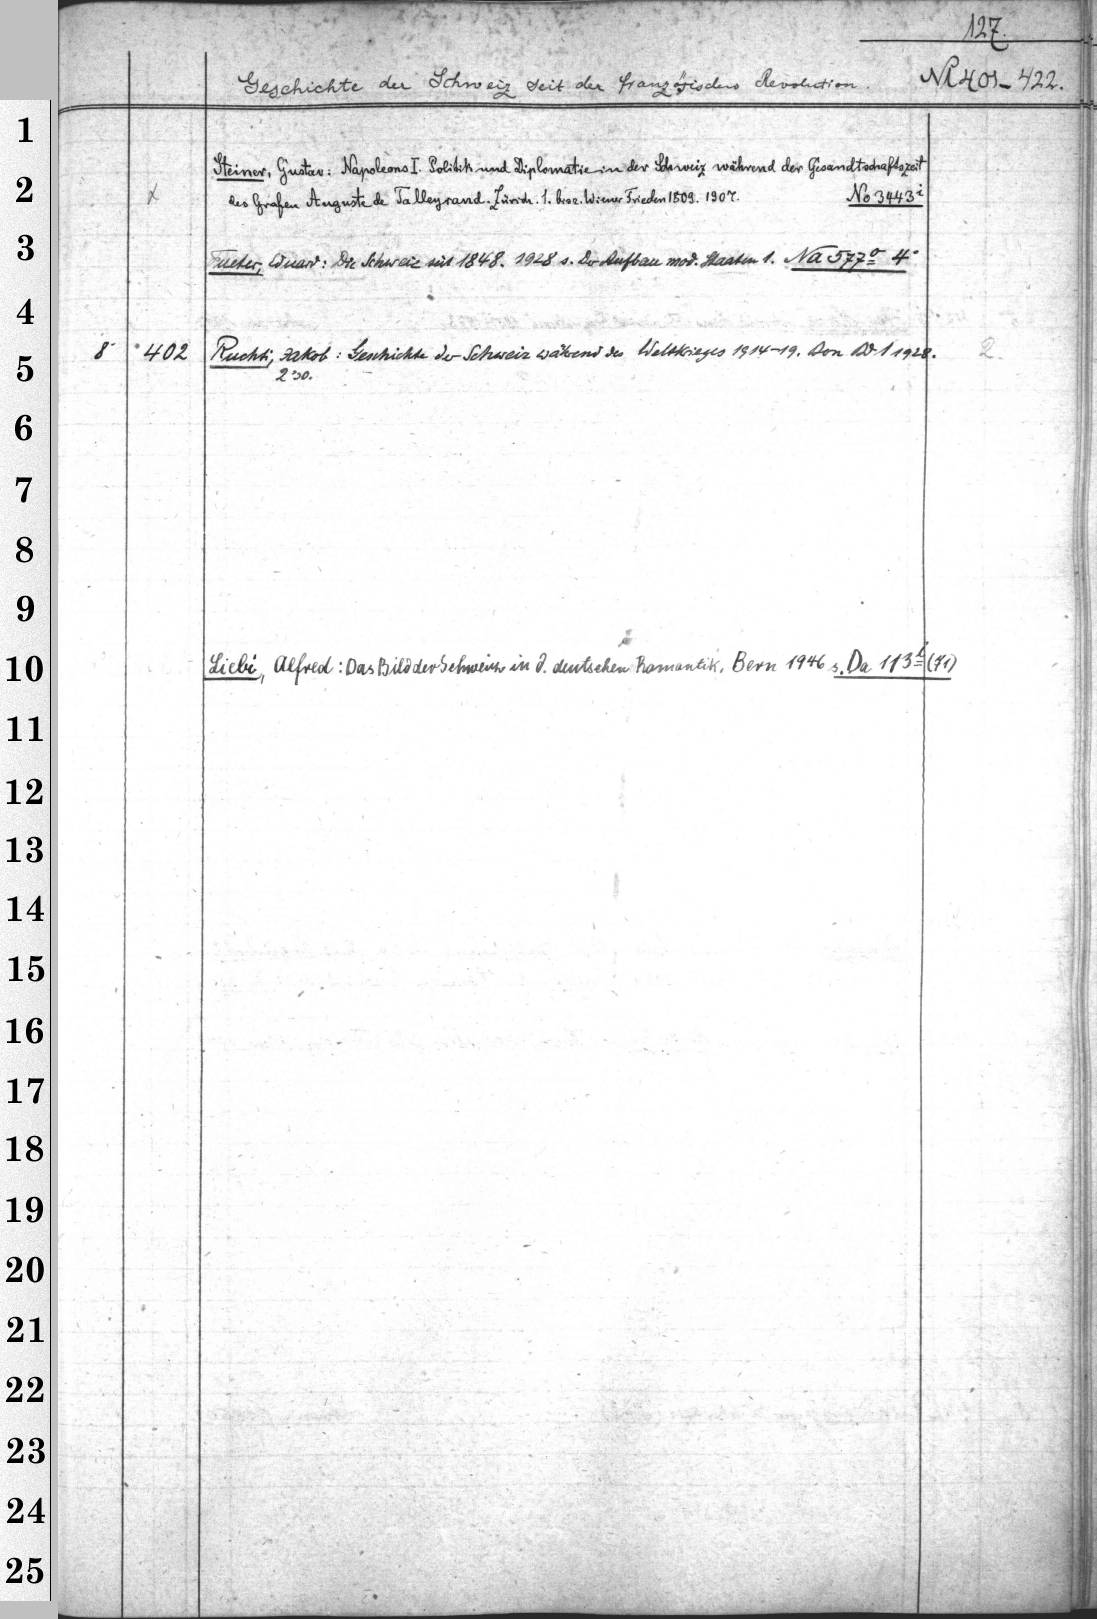 127.
Geschichte der Schweiz seit der französischen Revolution. Nl 401-422.
1
Steiner, Gustav: Napoleons I. Politik und Diplomatie in der Schweiz während der Gesandtschaftszeit
2 x des Grafen Auguste de Talleyrand. Zürich. 1. bis z. Wiener Frieden 1809. 1907. No 3443 i
3 Fueter, Eduard: Die Schweiz seit 1848. 1928 s. Der Aufbau mod. Staaten 1. Na 577 o 4°
4
8° 402 Ruchti, Jakob: Geschichte der Schweiz während des Weltkrieges 1914-19. Bern Bd. 1 1928. 2.
5 2 30.
6
7
8
9
10 Liebi, Alfred: Das Bild der Schweiz in d. deutschen Romantik. Bern 1946 s. Da 113 (71)
11
12
13
14
15
16
17
18
19
20
21
22
23
24
25